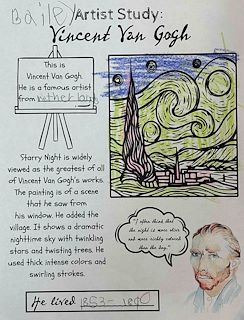 Bailey
Artist Study:
Vincent Van Gogh
This is
Vincent Van Gogh.
He is a famous artist
from netherlands
Starry Night is widely
viewed as the greatest of all
of Vincent Van Gogh's works.
The painting is of a scene
that he saw from
his window. He added the
village. It shows a dramatic
nighttime sky with twinkling
stars and twisting trees. He
used thick intense colors and
swirling strokes.
"I often think that
the night is more alive
and more richly colored
than the day."
He lived 1853-1890